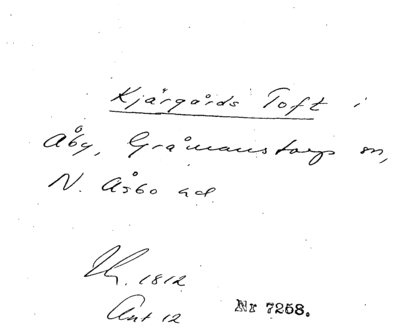 Kjärgårds Toft i
Åby, Gråmanstorps sn,
N. Åsbo hd
Th. 1812
Ant 12
Nr 7258.